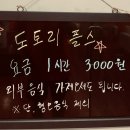 도토리 플스
요금 1시간 3000원
외부 음식 가져오셔도 됩니다.
※ 단, 혐오음식 제외